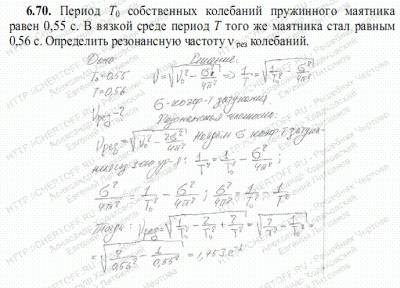 6.70. Период T₀ собственных колебаний пружинного маятника
равен 0,55 с. В вязкой среде период T того же маятника стал равным
0,56 с. Определить резонансную частоту ν рез колебаний.
Дано
Решение
T₀=0,55
T=0,56
ν рез-?
ν=√(ν₀²-б²/4π²) => 1/T=√(1/T₀²-б²/4π²)
б-коэф-т затухания
Резонансная частота
ν рез=√(ν₀²-2б²/4π²) Найдем б коэф-т затуха-
1/T²=1/T₀²-б²/4π²;
б²/4π²=1/T₀²-б²/4π²; б²/4π²=1/T₀²-1/T²
Тогда: ν рез=√(1/T₀²-2/T₀²+2/T²)=√(2/T²-1/T₀²)=
=√(2/0,56²-1/0,55²)=1,75Гс⁻¹